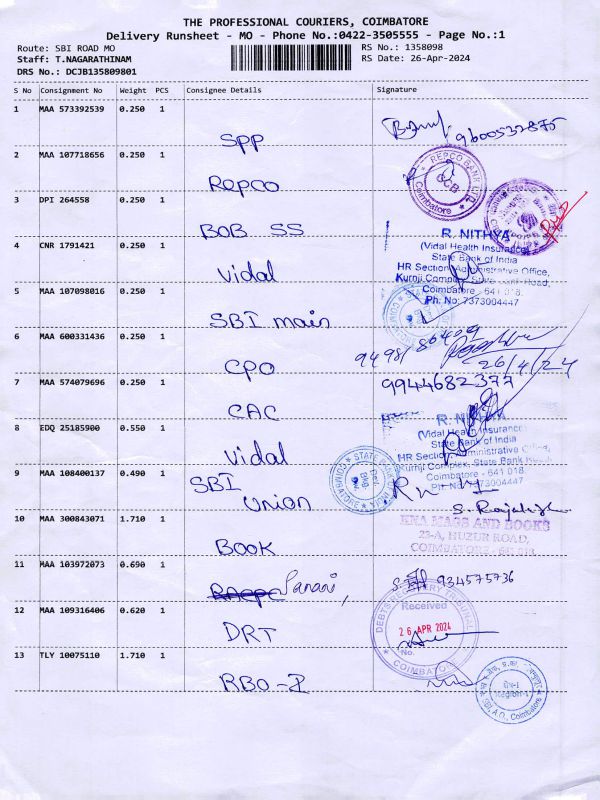 THE PROFESSIONAL COURIERS, COIMBATORE
Delivery Runsheet - MO - Phone No.:0422-3505555 - Page No.:1
Route: SBI ROAD MO
RS No.: 1358098
Staff: T.NAGARATHINAM
RS Date: 26-Apr-2024
DRS No.: DCJB135809801
S No Consignment No Weight PCS Consignee Details Signature
1 MAA 573392539 0.250 1
SPP
9600532875
2 MAA 107718656 0.250 1
Repco
REPCO BANK LTD.
Coimbatore
3 DPI 264558 0.250 1
BOB SS
R. NITHYA
(Vidal Health Insurance)
State Bank of India
4 CNR 1791421 0.250 1
Vidal
HR Section, Administrative Office,
Kurnji Complex, State Bank Road,
Coimbatore - 641 018.
Ph. No: 7373004447
5 MAA 107098016 0.250 1
SBI main
6 MAA 600331436 0.250 1
CPO
26/4/24
7 MAA 574079696 0.250 1
CAC
9944682377
8 EDQ 25185900 0.550 1
Vidal
R. NITHYA
(Vidal Health Insurance)
State Bank of India
HR Section, Administrative Office,
Kurnji Complex, State Bank Road,
Coimbatore - 641 018
Ph. No: 7373004447
9 MAA 108400137 0.490 1
SBI
Union
10 MAA 300843071 1.710 1
BOOK
MAGS AND BOOKS
23-A, HUZUR ROAD,
COIMBATORE - 641 018
11 MAA 103972073 0.690 1
934575736
12 MAA 109316406 0.620 1
DRT
DEBTS RECOVERY TRIBUNAL
Received
26 APR 2024
No.
COIMBATORE
13 TLY 10075110 1.710 1
RBO-I
Region-I
Coimbatore